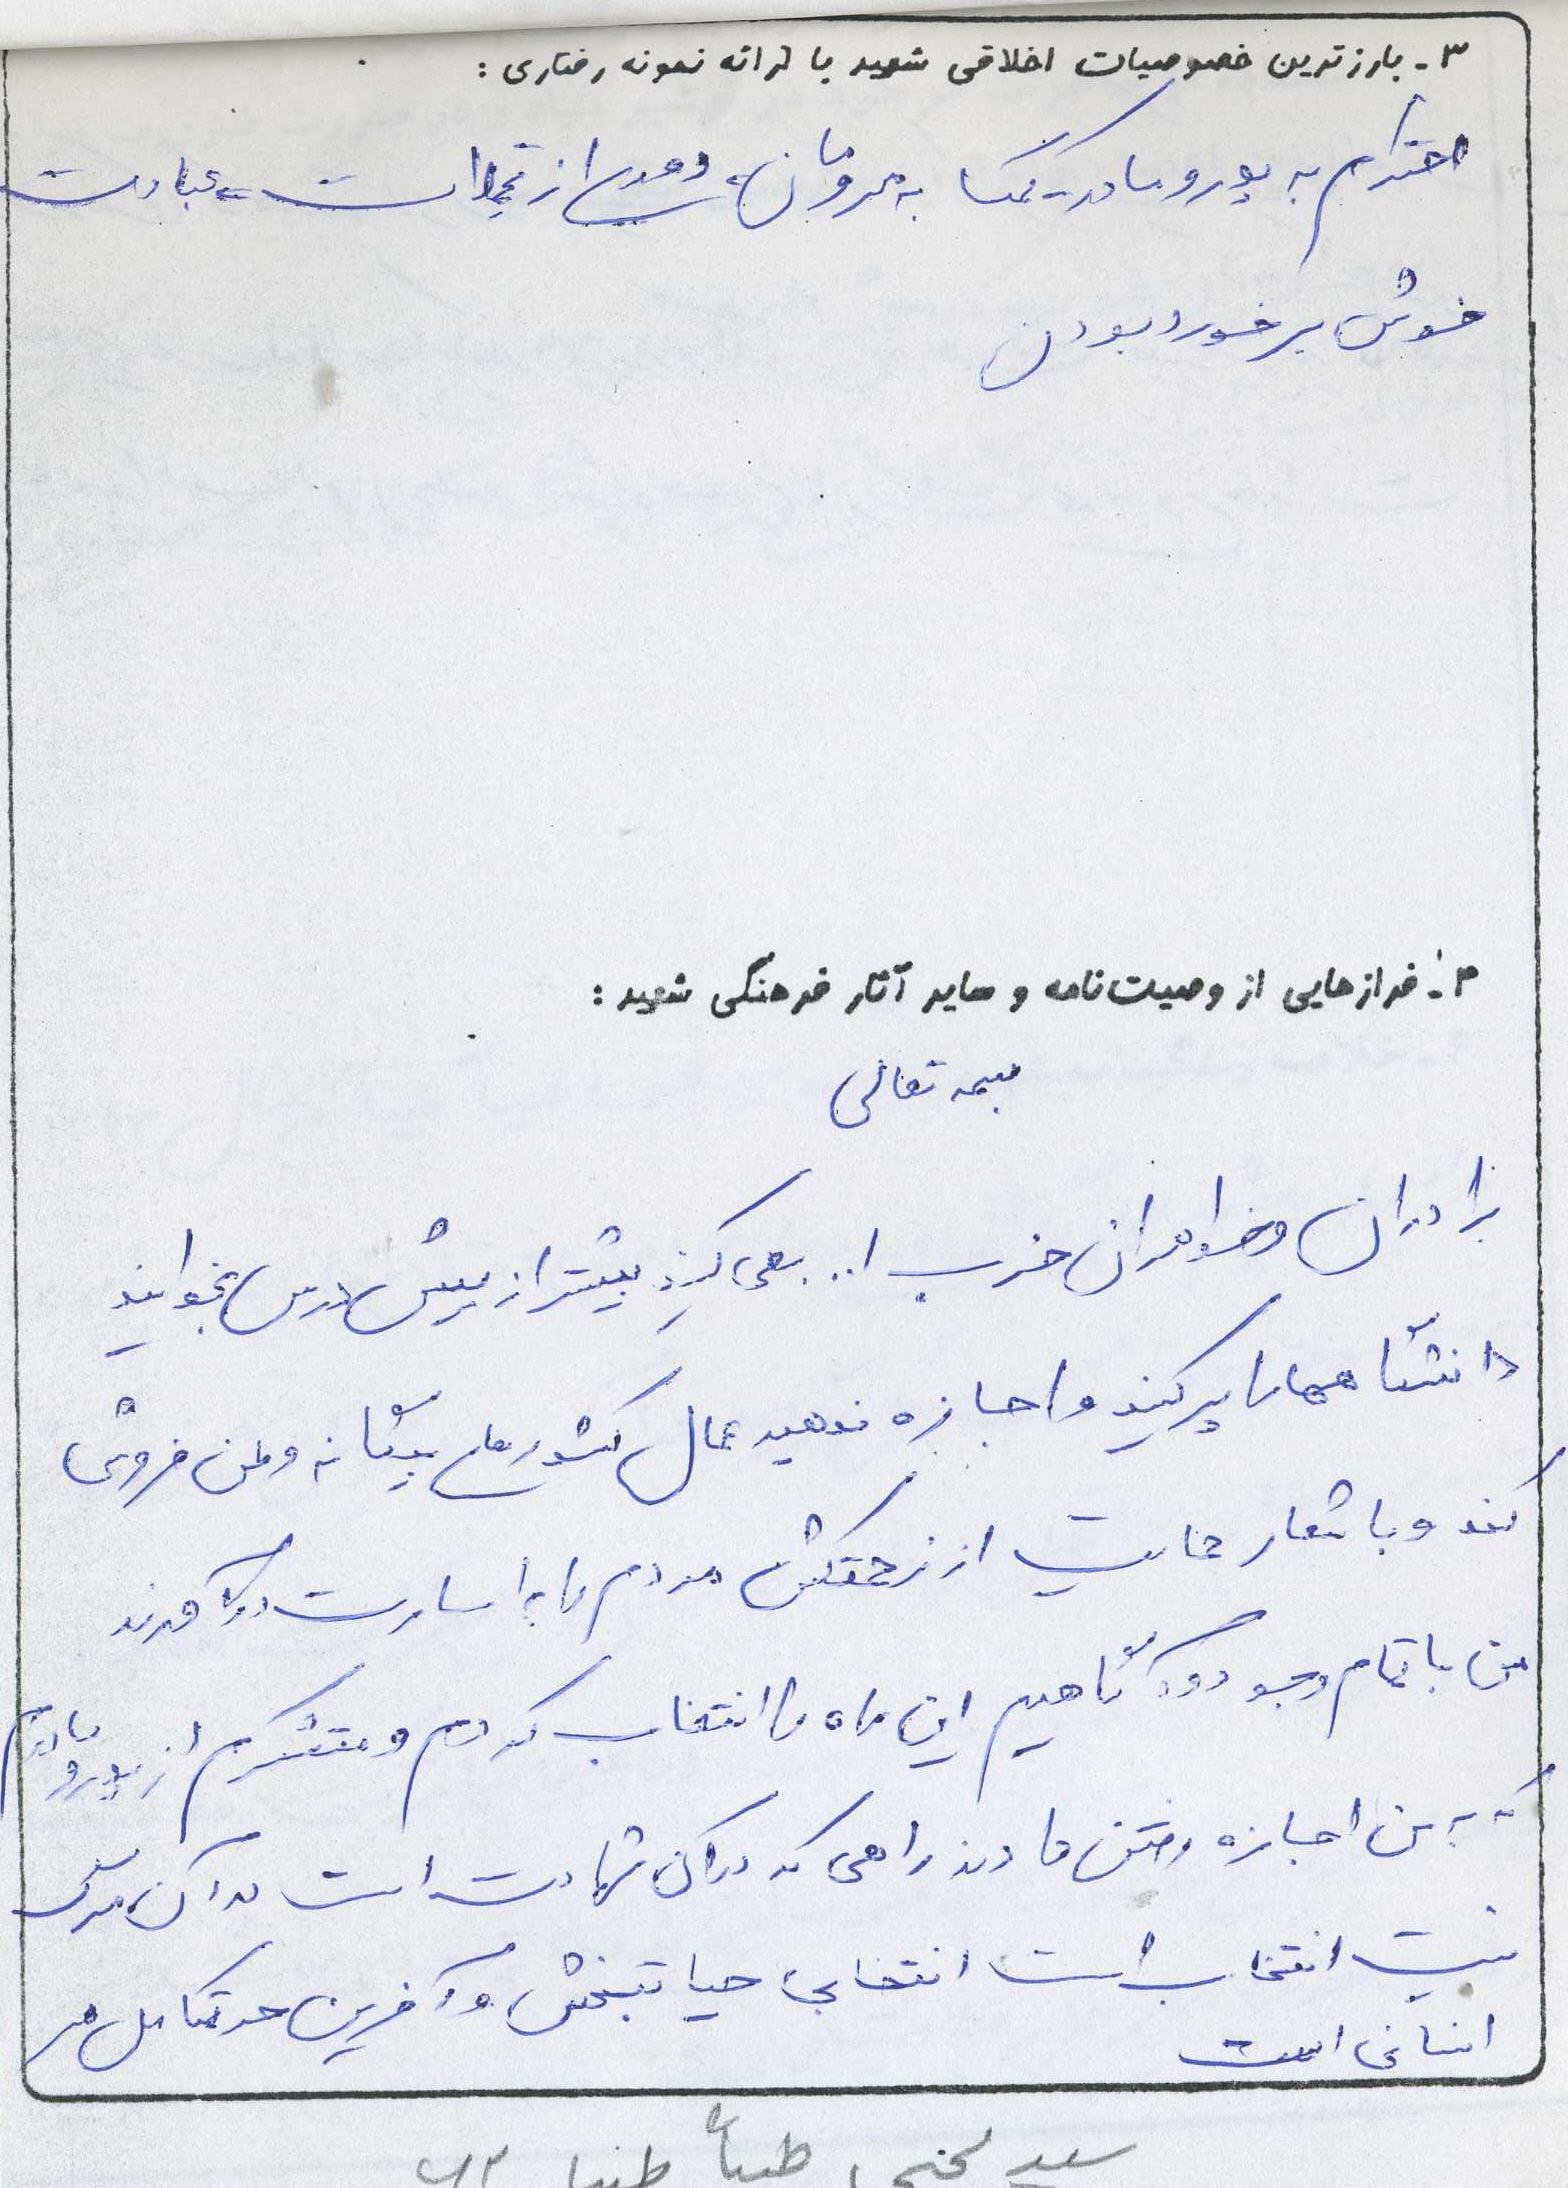 ۳ـ بارزترین خصوصیات اخلاقی شهید با ارائه نمونه رفتاری :
احترام به پدر و مادر ـ کمک به محرومان، دوری از تجملات ـ عبادت
خوش برخورد بودن
۴ـ فرازهایی از وصیت‌نامه و سایر آثار فرهنگی شهید :
بسمه تعالی
برادران و خواهران حزب ا.. سعی کنید بیشتر از پیش درس بخوانید
دانشگاهها را پر کنید و اجازه ندهید عمال کشورهای بیگانه وطن فروشی
کنند و با شعار حمایت از زحمتکش مردم را به اسارت درآورند
من با تمام وجود و آگاهیم این راه را انتخاب کردم و متشکرم از پدر و مادرم
که به من اجازه رفتن دادند راهی که در آن شهادت است در آن مرگ
نیست انتخاب است انتخابی حیاتبخش و آخرین حد تکامل هر
انسانی است
سید طبا طبا